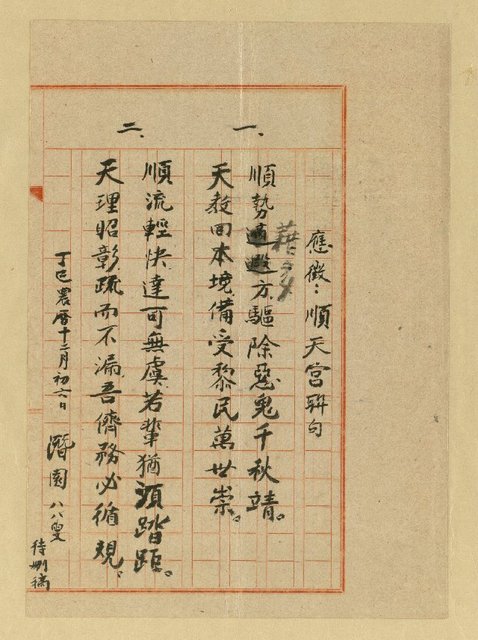 應徵：順天宮聯句
一、
順勢遍遐方驅除惡鬼千秋靖。
藉多
天敎回本境備受黎民萬世崇。
二、
順流輕快達可無虞若輩猶須踏距。
天理昭彰疏而不漏吾儕務必循規、
丁巳農曆十二月初六日
潛園 八八叟
待刪稿